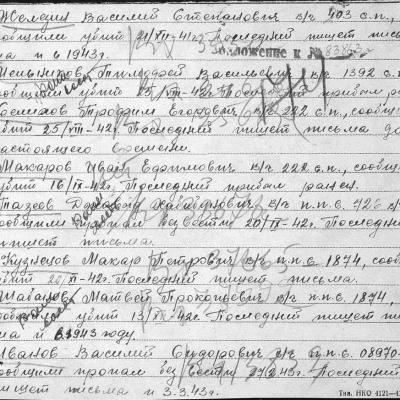 Желедин Василий Степанович в/ч 403 с.п.,
сообщили убит 21/VII-42г. Последний пишет пись
ма и в 1943г. Приложение к № 83863
Тимофей Васильевич в/ч 1392 с.п.
сообщили убит 25/VIII-42г. Последний прибыл ран
Трофим Егорович в/ч 222 с.п., сообщ
убит 25/VIII-42г. Последний пишет письма до
настоящего времени.
Макаров Иван Ефимович в/ч 222 с.п., сообщ
убит 16/IX-42г. Последний прибыл ранен.
Тазеев в/ч п.п.с. 726 с/
сообщили пропал без вести 20/IX-42г. Последний
пишет письма.
Кузнецов Макар Петрович в/ч п.п.с. 1874, сооб
убит 20/IX-42г. Последний пишет письма.
Шабанов Матвей Прокопьевич в/ч п.п.с. 1874,
сообщили убит 13/IX-42г. Последний пишет пис
ма и в 1943 году.
Иванов Василий Сидорович в/ч п.п.с. 08970-
сообщили пропал без вести 27/2.43г. Последний
пишет письма и 3.3.43г.
Тип. НКО 4121-4